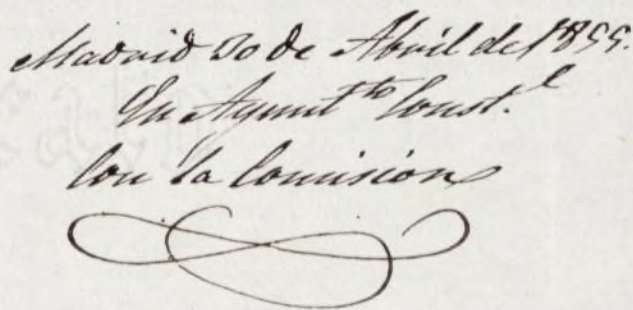 Madrid 30 de Abril de 1855.
En Ayunt.to Const.l
Con la Comision